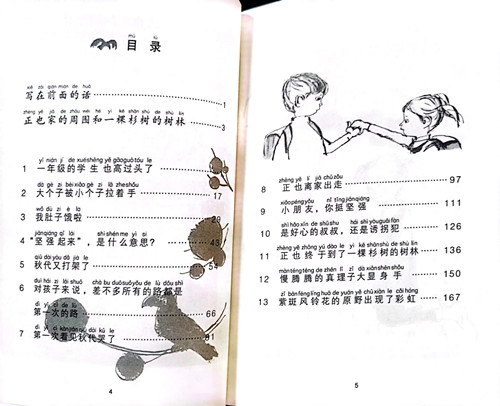 mù lù
目 录
xiě zài qián miàn de huà
写在前面的话 1
zhèng yě jiā de zhōu wéi hé yì kē shān shù de shù lín
正也家的周围和一棵杉树的树林 3
yī nián jí de xué shēng yě gāo guò tóu le
1 一年级的学生也高过头了 4
dà gè zi bèi xiǎo gè zi lā zhe shǒu
2 大个子被小个子拉着手 17
wǒ dù zi è la
3 我肚子饿啦 29
jiān qiáng qǐ lái shì shén me yì si
4 “坚强起来”，是什么意思？ 43
qiū dài yòu dǎ jià le
5 秋代又打架了 54
duì hái zi lái shuō chà bu duō suǒ yǒu de lù dōu shì
6 对孩子来说，差不多所有的路都是
dì yī cì de lù
第一次的路 66
dì yī cì kàn jiàn qiū dài kū le
7 第一次看见秋代哭了 81
4
zhèng yě lí jiā chū zǒu
8 正也离家出走 97
xiǎo péng yǒu nǐ tǐng jiān qiáng
9 小朋友，你挺坚强 111
shì hǎo xīn de shū shu hái shì yòu guǎi fàn
10 是好心的叔叔，还是诱拐犯 126
zhèng yě zhōng yú dào le yì kē shān shù de shù lín
11 正也终于到了一棵杉树的树林 136
màn téng téng de zhēn lǐ zǐ dà xiǎn shēn shǒu
12 慢腾腾的真理子大显身手 150
zǐ bān fēng líng huā de yuán yě chū xiàn le cǎi hóng
13 紫斑风铃花的原野出现了彩虹 167
5